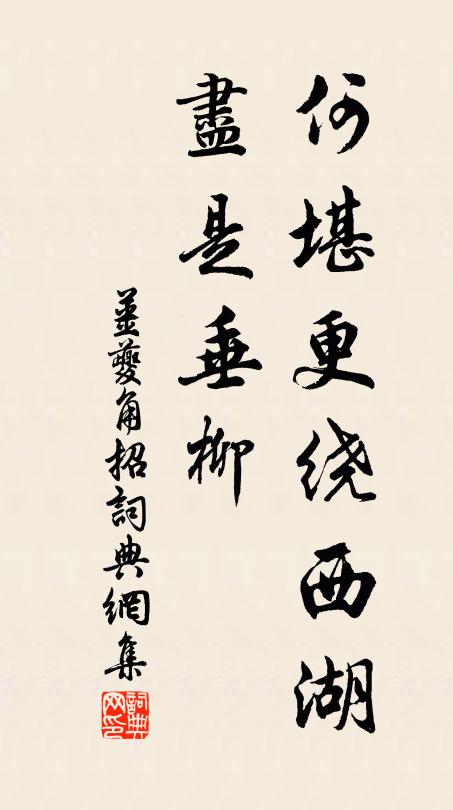 何堪更绕西湖
盡是垂柳
姜夔角招詞典網集
詞典
网印